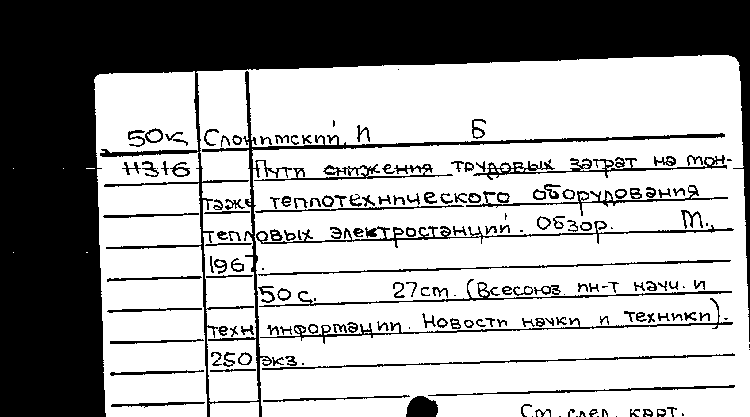 50к Слонимский, И Б
11316 Пути снижения трудовых затрат на мон-
таже теплотехнического оборудования
тепловых электростанций. Обзор. М.,
1967.
50 с. 27 cm. (Всесоюз ин-т науч. и
техн информации. Новости науки и техники).
250 экз.
См. след. карт.